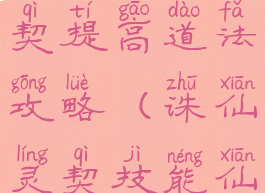 qì tí gāo dào fǎ
契提高道法
gōng lüè zhū xiān
攻略（诛仙
líng qì jì néng xiān
灵契技能仙